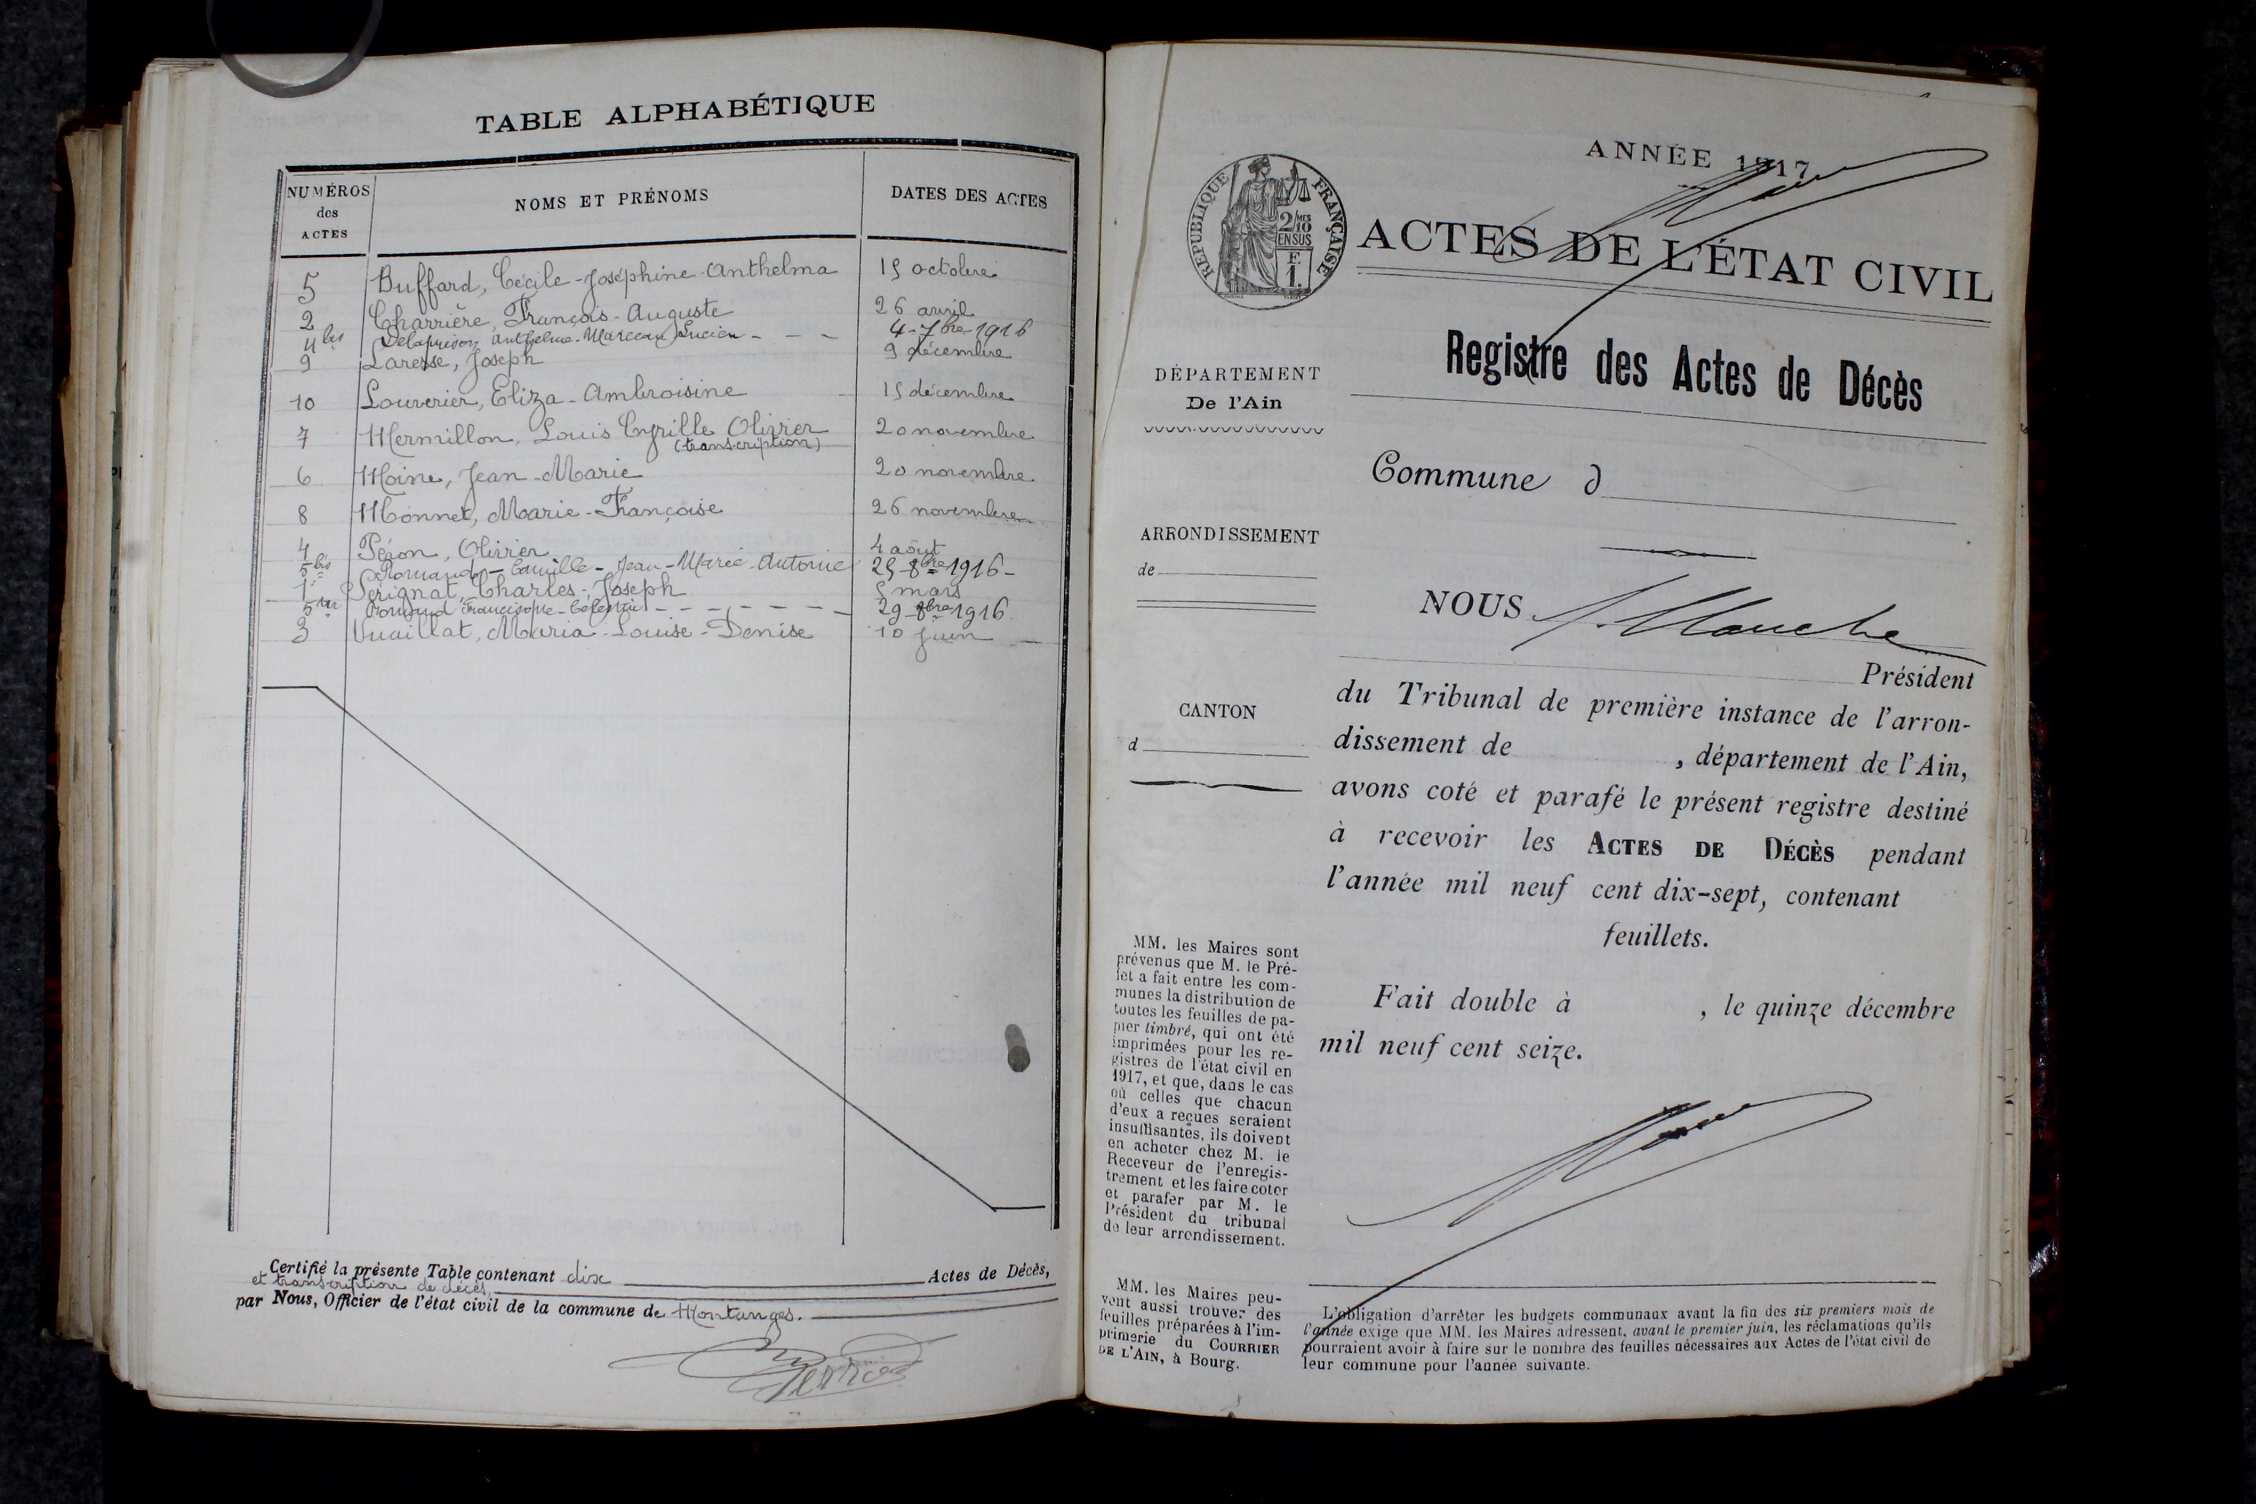 TABLE ALPHABÉTIQUE
NUMÉROS des ACTES
NOMS ET PRÉNOMS
DATES DES ACTES
5 Buffard, Cécile-Joséphine-Anthelma 15 octobre
2 Charrière, François-Auguste 26 avril
4 bis Delaprison Anthelme-Marceau Lucien - - - 4-7bre 1916
9 Laresse, Joseph 9 décembre
10 Louvrier, Eliza-Ambroisine 15 décembre
7 Mermillon, Louis Cyrille Olivier 20 novembre
(transcription)
6 Moine, Jean-Marie 20 novembre
8 Monnet, Marie-Françoise 26 novembre
4 Péron, Olivier 4 août
5 bis Romand - Camille - Jean-Marie-Antoine 25-8bre 1916-
1 Sérignat, Charles-Joseph 5 mars
5 ter Romand Francisque-Célestin - - - - - - - 29-8bre 1916
3 Vuaillat, Maria-Louise-Denise 10 juin
Certifié la présente Table contenant dix Actes de Décès,
et transcription de décès,
par Nous, Officier de l'état civil de la commune de Montanges.
ANNÉE 1917
RÉPUBLIQUE FRANÇAISE
2/10 MES
EN SUS
E
1.
ACTES DE L'ÉTAT CIVIL
Registre des Actes de Décès
DÉPARTEMENT
De l'Ain
Commune d
ARRONDISSEMENT
de
NOUS
Président
CANTON
d
du Tribunal de première instance de l'arron-
dissement de , département de l'Ain,
avons coté et parafé le présent registre destiné
à recevoir les ACTES DE DÉCÈS pendant
l'année mil neuf cent dix-sept, contenant
feuillets.
Fait double à , le quinze décembre
mil neuf cent seize.
MM. les Maires sont
prévenus que M. le Pré-
fet a fait entre les com-
munes la distribution de
toutes les feuilles de pa-
pier timbré, qui ont été
imprimées pour les re-
gistres de l'état civil en
1917, et que, dans le cas
où celles que chacun
d'eux a reçues seraient
insuffisantes, ils doivent
en acheter chez M. le
Receveur de l'enregis-
trement et les faire coter
et parafer par M. le
Président du tribunal
de leur arrondissement.
MM. les Maires peu-
vent aussi trouver des
feuilles préparées à l'im-
primerie du COURRIER
DE L'AIN, à Bourg.
L'obligation d'arrêter les budgets communaux avant la fin des six premiers mois de
l'année exige que MM. les Maires adressent, avant le premier juin, les réclamations qu'ils
pourraient avoir à faire sur le nombre des feuilles nécessaires aux Actes de l'état civil de
leur commune pour l'année suivante.